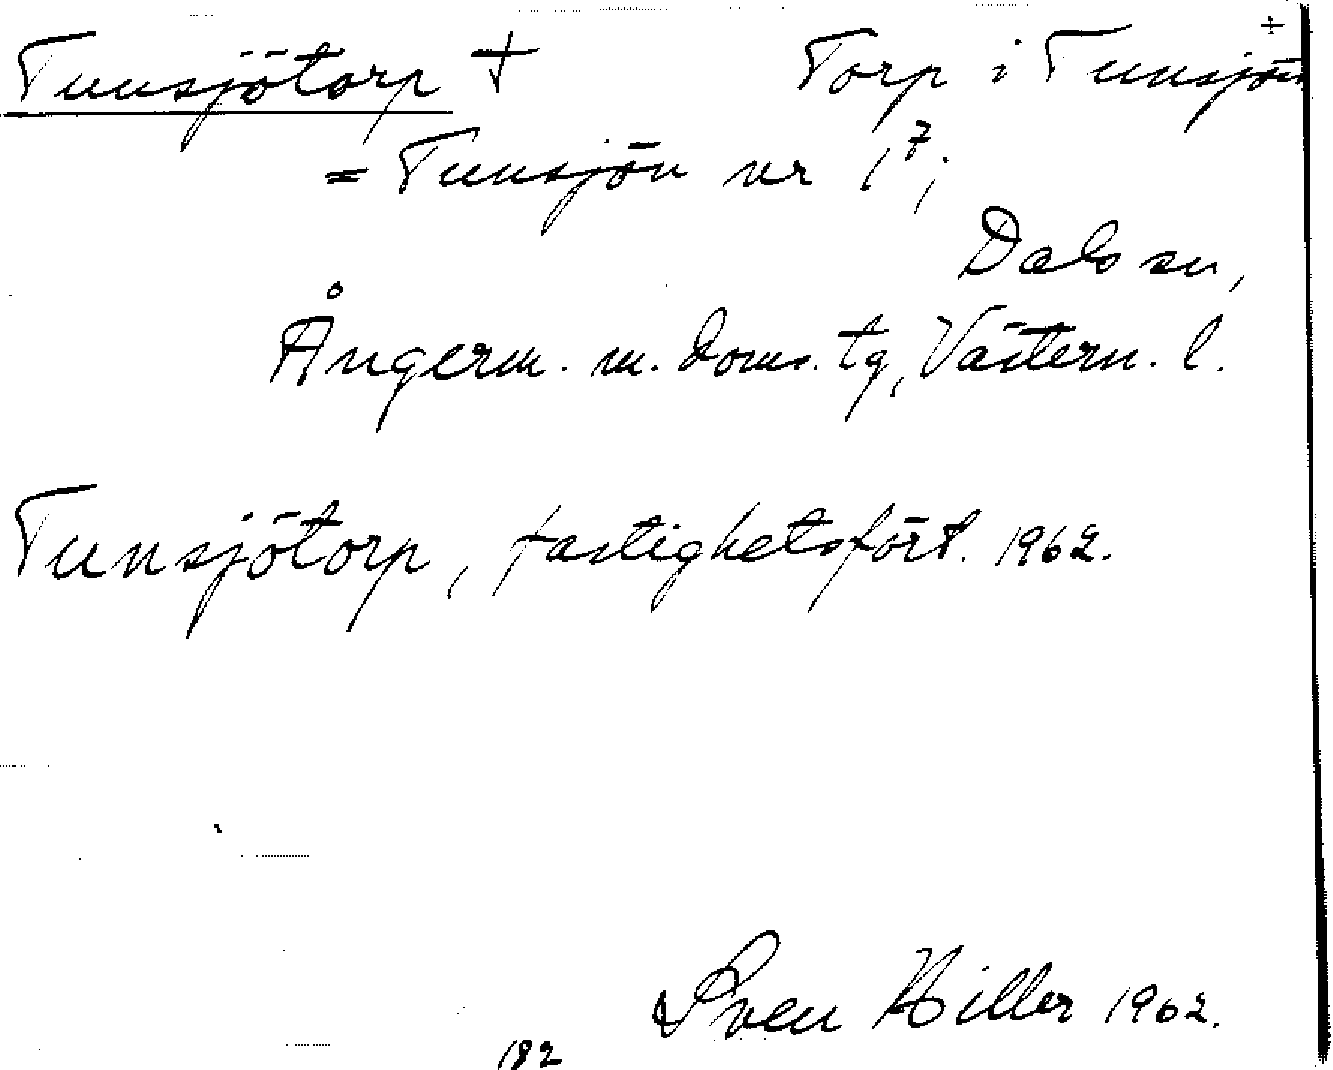 Tunsjötorp + Torp i Tunsjön +
= Tunsjön nr 1⁷;
Dals sn,
Ångerm. m. doms. tg, Västern. l.
Tunsjötorp, fastighetsfört. 1962.
Sven Hiller 1962.
182